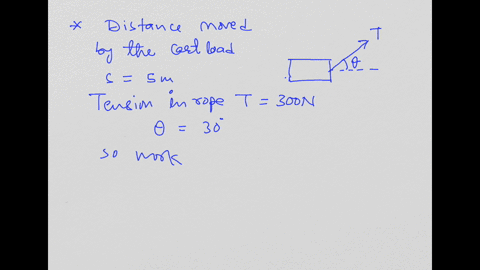 * Distance moved
by the cart load
s = 5m
Tension in rope T = 300N
θ = 30°
so work
T
θ